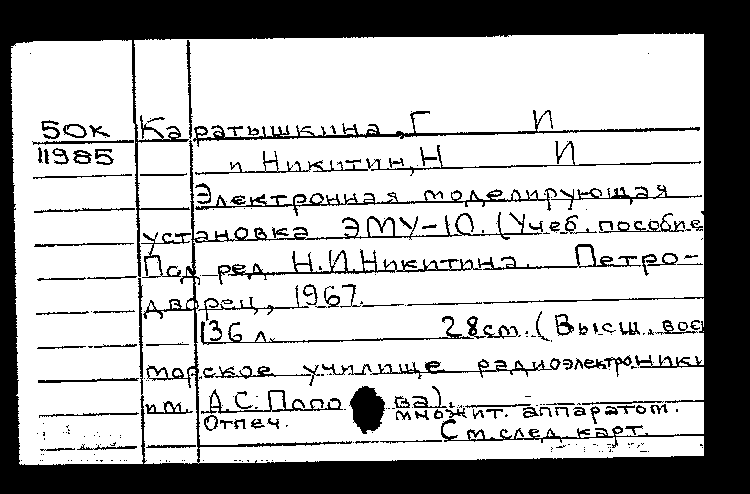 50к Каратышкина, Г И
11985 и Никитин, Н И
Электронная моделирующая
установка ЭМУ-10. (Учеб. пособие
Под ред Н.И.Никитина. Петро-
дворец, 1967.
136 л. 28cm. (Высш. вое
морское училище радиоэлектроники
им. А.С. Попова).
Отпеч. множит. аппаратом.
См. след. карт.